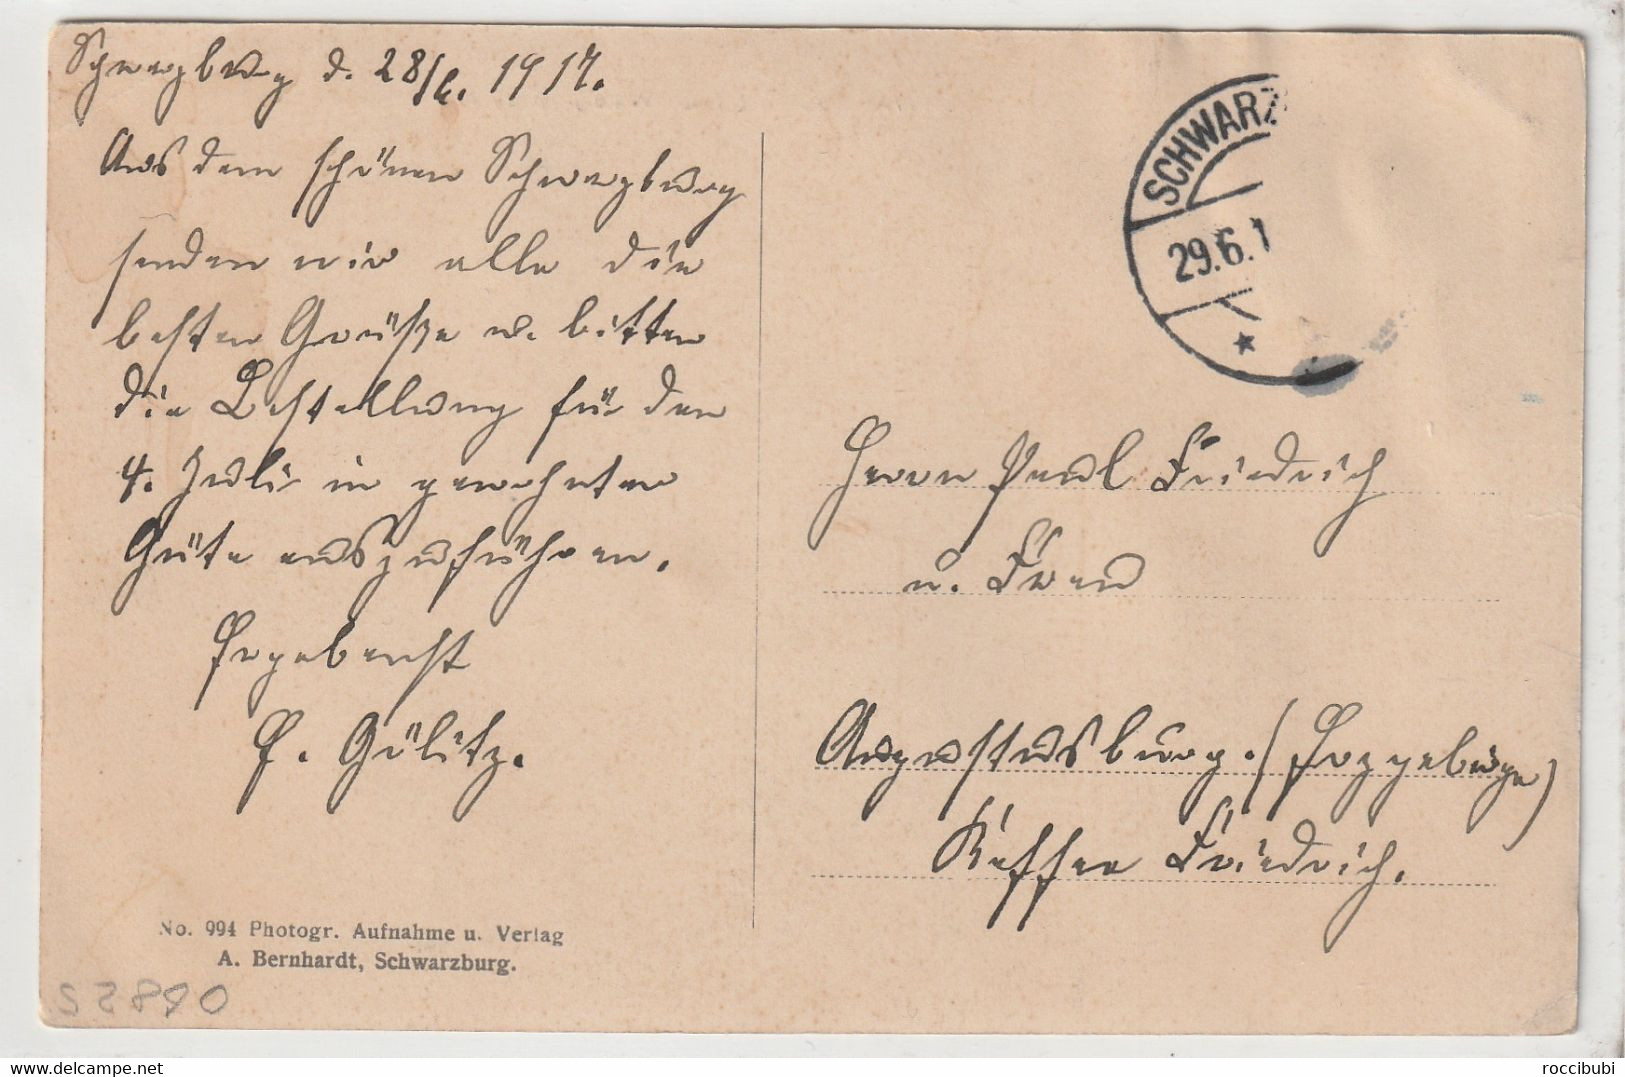 Schwarzburg d. 28/6. 1917.
Aus dem schönen Schwarzburg
senden wir alle die
besten Grüße u. bitten
die Bestellung für den
4. Juli in gewohnter
Güte auszuführen.
Ergebenst
P. Gölitz.
No. 994 Photogr. Aufnahme u. Verlag
A. Bernhardt, Schwarzburg.
S2890
SCHWARZ
29.6.1
Herrn Paul Friedrich
u. Frau
Augustusburg. (Erzgebirge)
Kaffee Friedrich.
www.delcampe.net
roccibubi